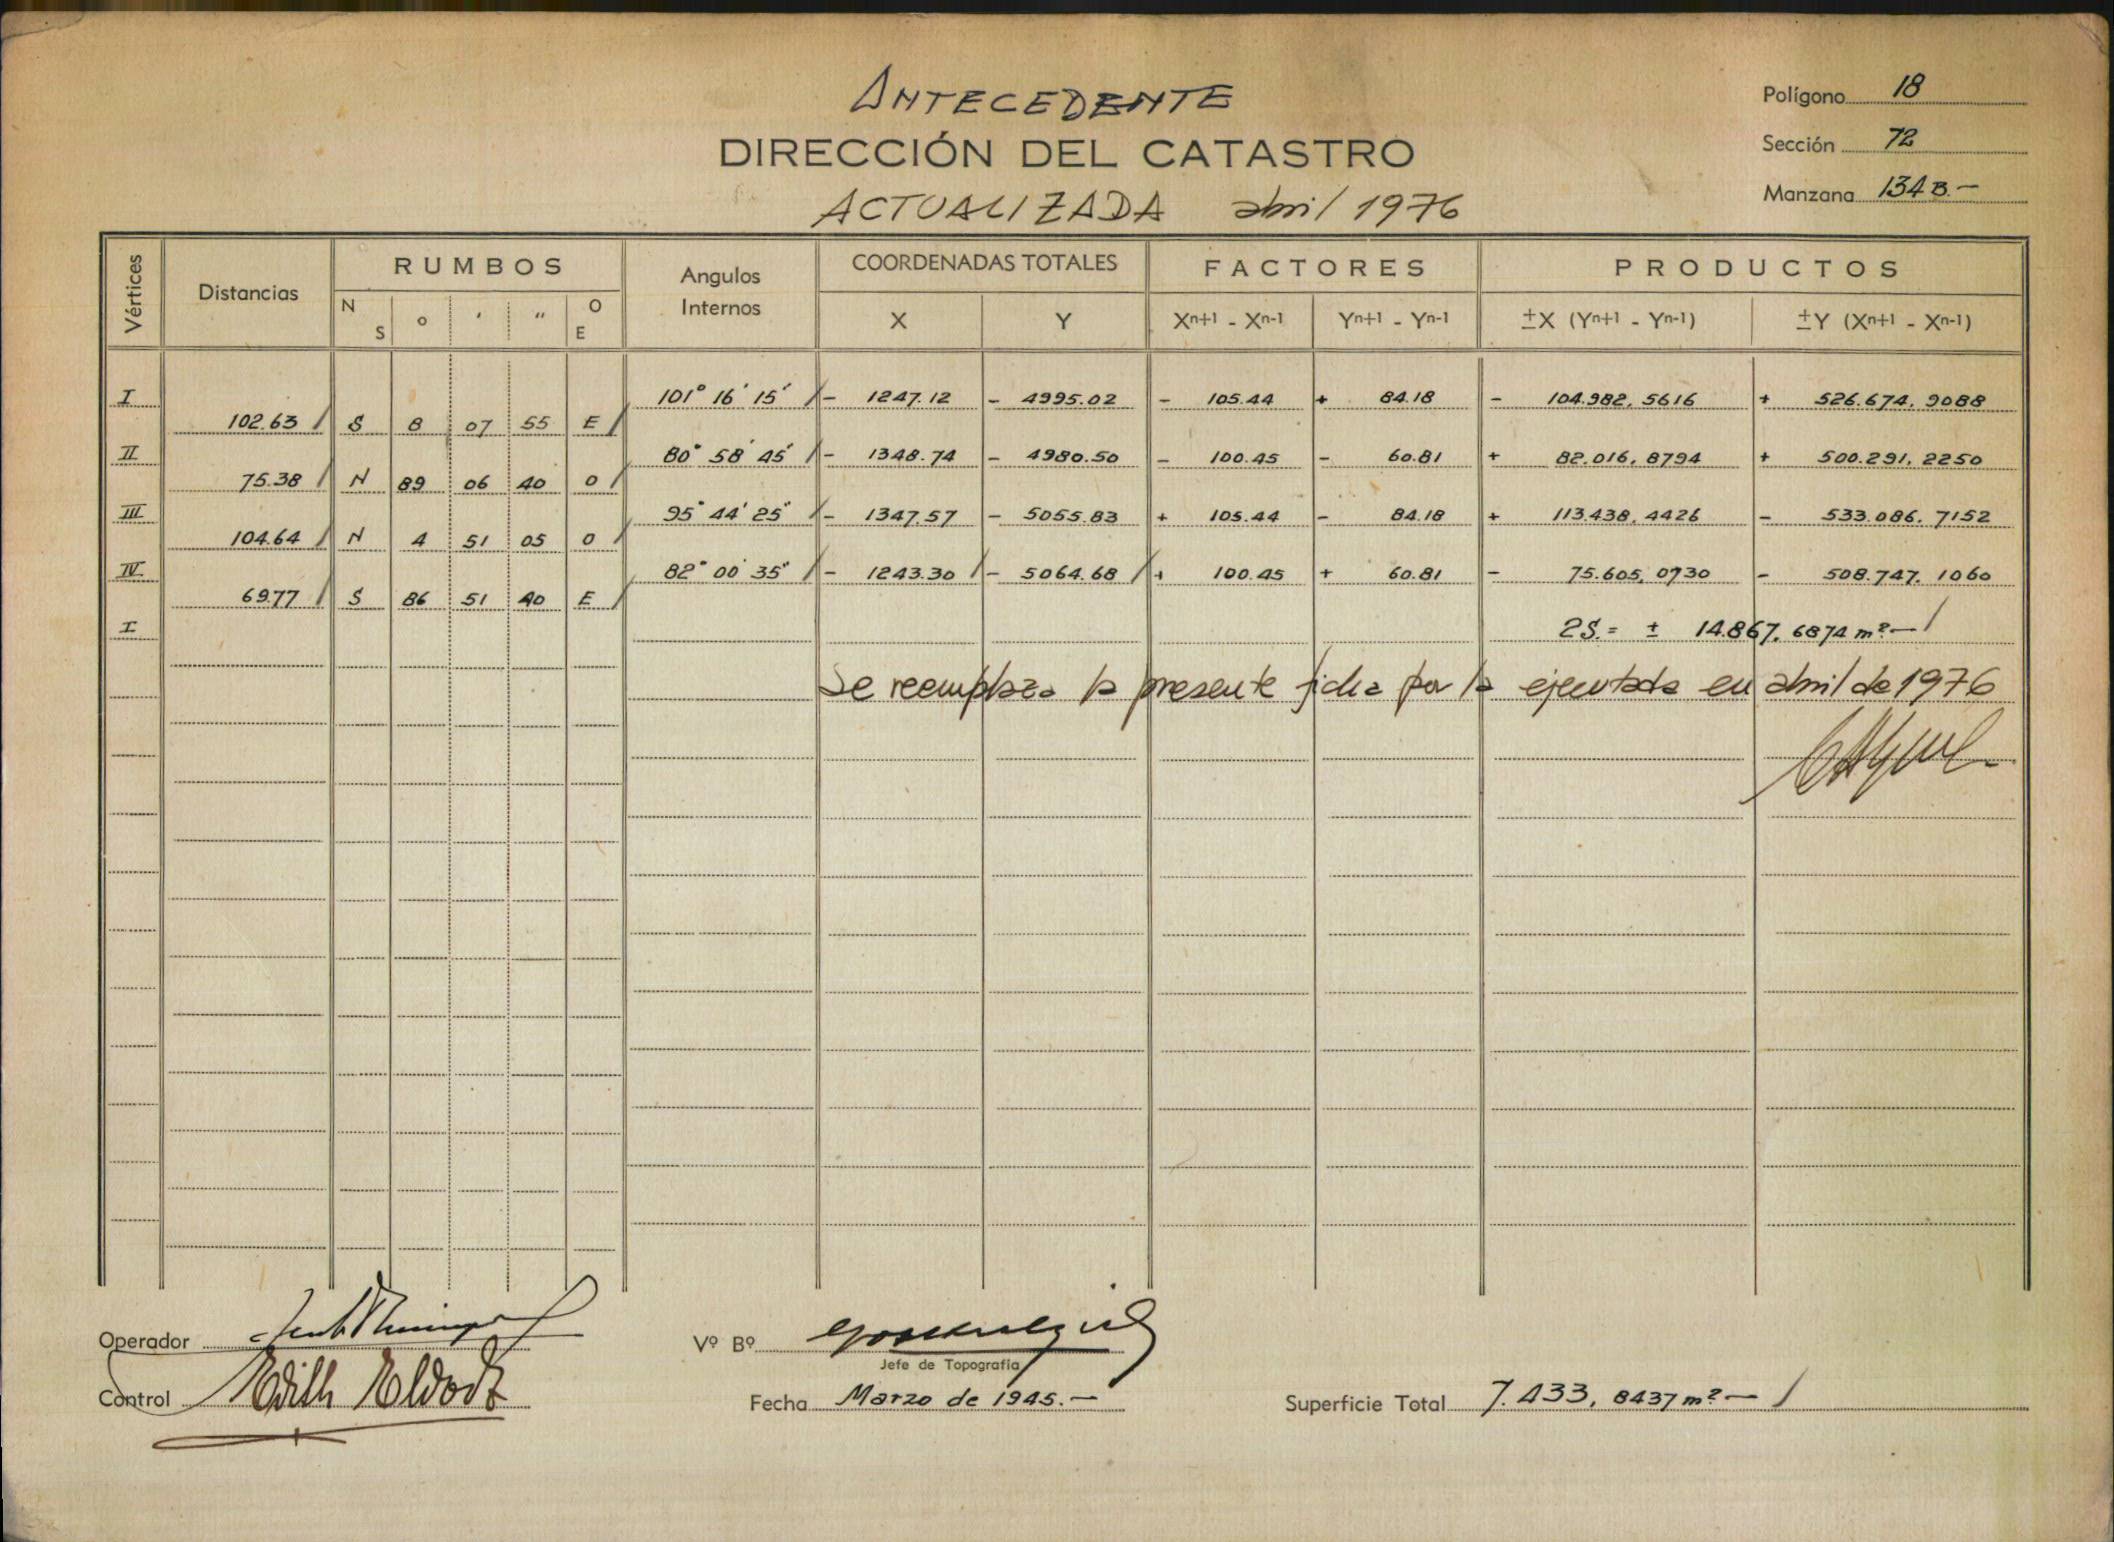 ANTECEDENTE
Polígono 18
DIRECCIÓN DEL CATASTRO
Sección 72
Manzana 134 B.-
ACTUALIZADA abril 1976
Vértices Distancias RUMBOS Angulos Internos COORDENADAS TOTALES FACTORES PRODUCTOS
N S o ' " O E X Y Xn+1 - Xn-1 Yn+1 - Yn-1 ±X (Yn+1 - Yn-1) ±Y (Xn+1 - Xn-1)
I 101° 16' 15' - 1247.12 - 4995.02 - 105.44 + 84.18 - 104.982,5616 + 526.674,9088
102.63 S 8 07 55 E
II 80° 58' 45' - 1348.74 - 4980.50 - 100.45 - 60.81 + 82.016,8794 + 500.291,2250
75.38 N 89 06 40 O
III 95° 44' 25" - 1347.57 - 5055.83 + 105.44 - 84.18 + 113.438,4426 - 533.086,7152
104.64 N 4 51 05 O
IV 82° 00' 35" - 1243.30 - 5064.68 + 100.45 + 60.81 - 75.605,0730 - 508.747,1060
69.77 S 86 51 40 E
I 2S.= ± 14.867,6874 m²-
Se reemplaza la presente ficha por la ejecutada en abril de 1976
Operador
Vº Bº
Jefe de Topografía
Control Edith
Fecha Marzo de 1945.-
Superficie Total 7.433,8437 m²-